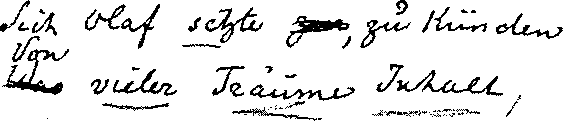 Sich Olaf setzte, zu Künden
Von
vieler Träume Inhalt,